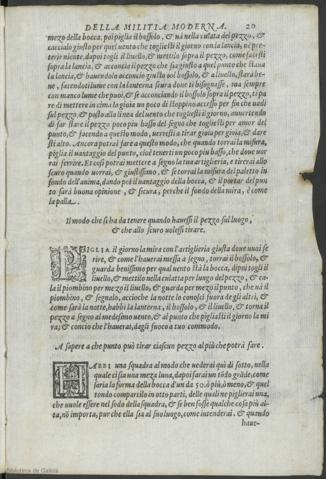 DELLA MILITIA MODERNA. 20
mezo della bocca, poi piglia il bossolo, & và nella culata del pezzo, &
caccialo giusto per quel vento che togliesti il giorno con la lancia, nè pre-
terir niente, dapoi togli il liuello, & mettilo sopra il pezzo, come facesti
sopra la lancia, & acconcia il pezzo che stia giusto a quel ponto che staua
la lancia, & hauendolo acconcio giusto col bossolo, & al liuello, starà be-
ne, facendoti lume con la lanterna soura doue ti bisognasse, ma sempre
con manco lume che puoi. & se acconciando il bossolo sopra il pezzo, ti pa
re di mettere in cima la gioia un poco di stoppino acceso per fin che uadi
sul pezzo, & posto alla linea del uento che togliesti il giorno, auuertendo
di far stare il pezzo poco piu basso del segno che togliesti per amor del
punto, & facendo a questo modo, uerresti a tirar gioia per gioia, & dare
sti alto. Ancora potrai fare a questo modo, che quando torrai la misura,
piglia il uantaggio del punto, cioè tenerti un poco piu basso, che doue uor
rai ferrire. Et così potrai mettere a segno la tua artiglieria, e tirerai allo
scuro quando uorrai, & giustissimo, & se torrai la misura del paletto in
fondo dell'anima, dando poi il uantaggio della bocca, & il pontar del pun
to sarà buona opinione, & sicura, perche il fondo della mira, è come
la palla.
Il modo che si ha da tenere quando hauessi il pezzo sul luogo,
& che allo scuro uolessi tirare.
PIGLIA il giorno la mira con l'artiglieria giusta doue uuoi fe
rire, & come l'hauerai messa a segno, torrai il bossolo, &
guarda benissimo per qual uento stà la bocca, dipoi togli il
liuello, & mettilo nella culatta per luogo del pezzo, & ca-
la il piombino per mezo il liuello, & guarda per mezo il punto, che uà il
piombino, & segnalo, accioche la notte lo conosci fuora degli altri, &
come sarà la notte, habbi la lanterna, il bossolo, & il liuello, & torna il
pezzo a segno al medesimo uento, & al punto che pigliasti il giorno la mi
ra; & concio che l'hauerai, dagli fuoco a tuo commodo.
A sapere a che punto può tirar ciascun pezzo al più che potrà fare.
HABBI una squadra al modo che uederai quà di sotto, nella
quale ci sia una meza luna, dapoi farai un tōdo grāde, come
saria la forma della bocca d'un da 50. ò più, ò meno, & quel
tondo compartilo in otto parti, delle quali ne piglierai una,
che uuole essere nel sodo della squadra, & se ben fosse qualche cosa più al-
ta, nō importa, pur che ella sia al suo luogo, come intenderai. & quando
haue-
Biblioteca de Galicia